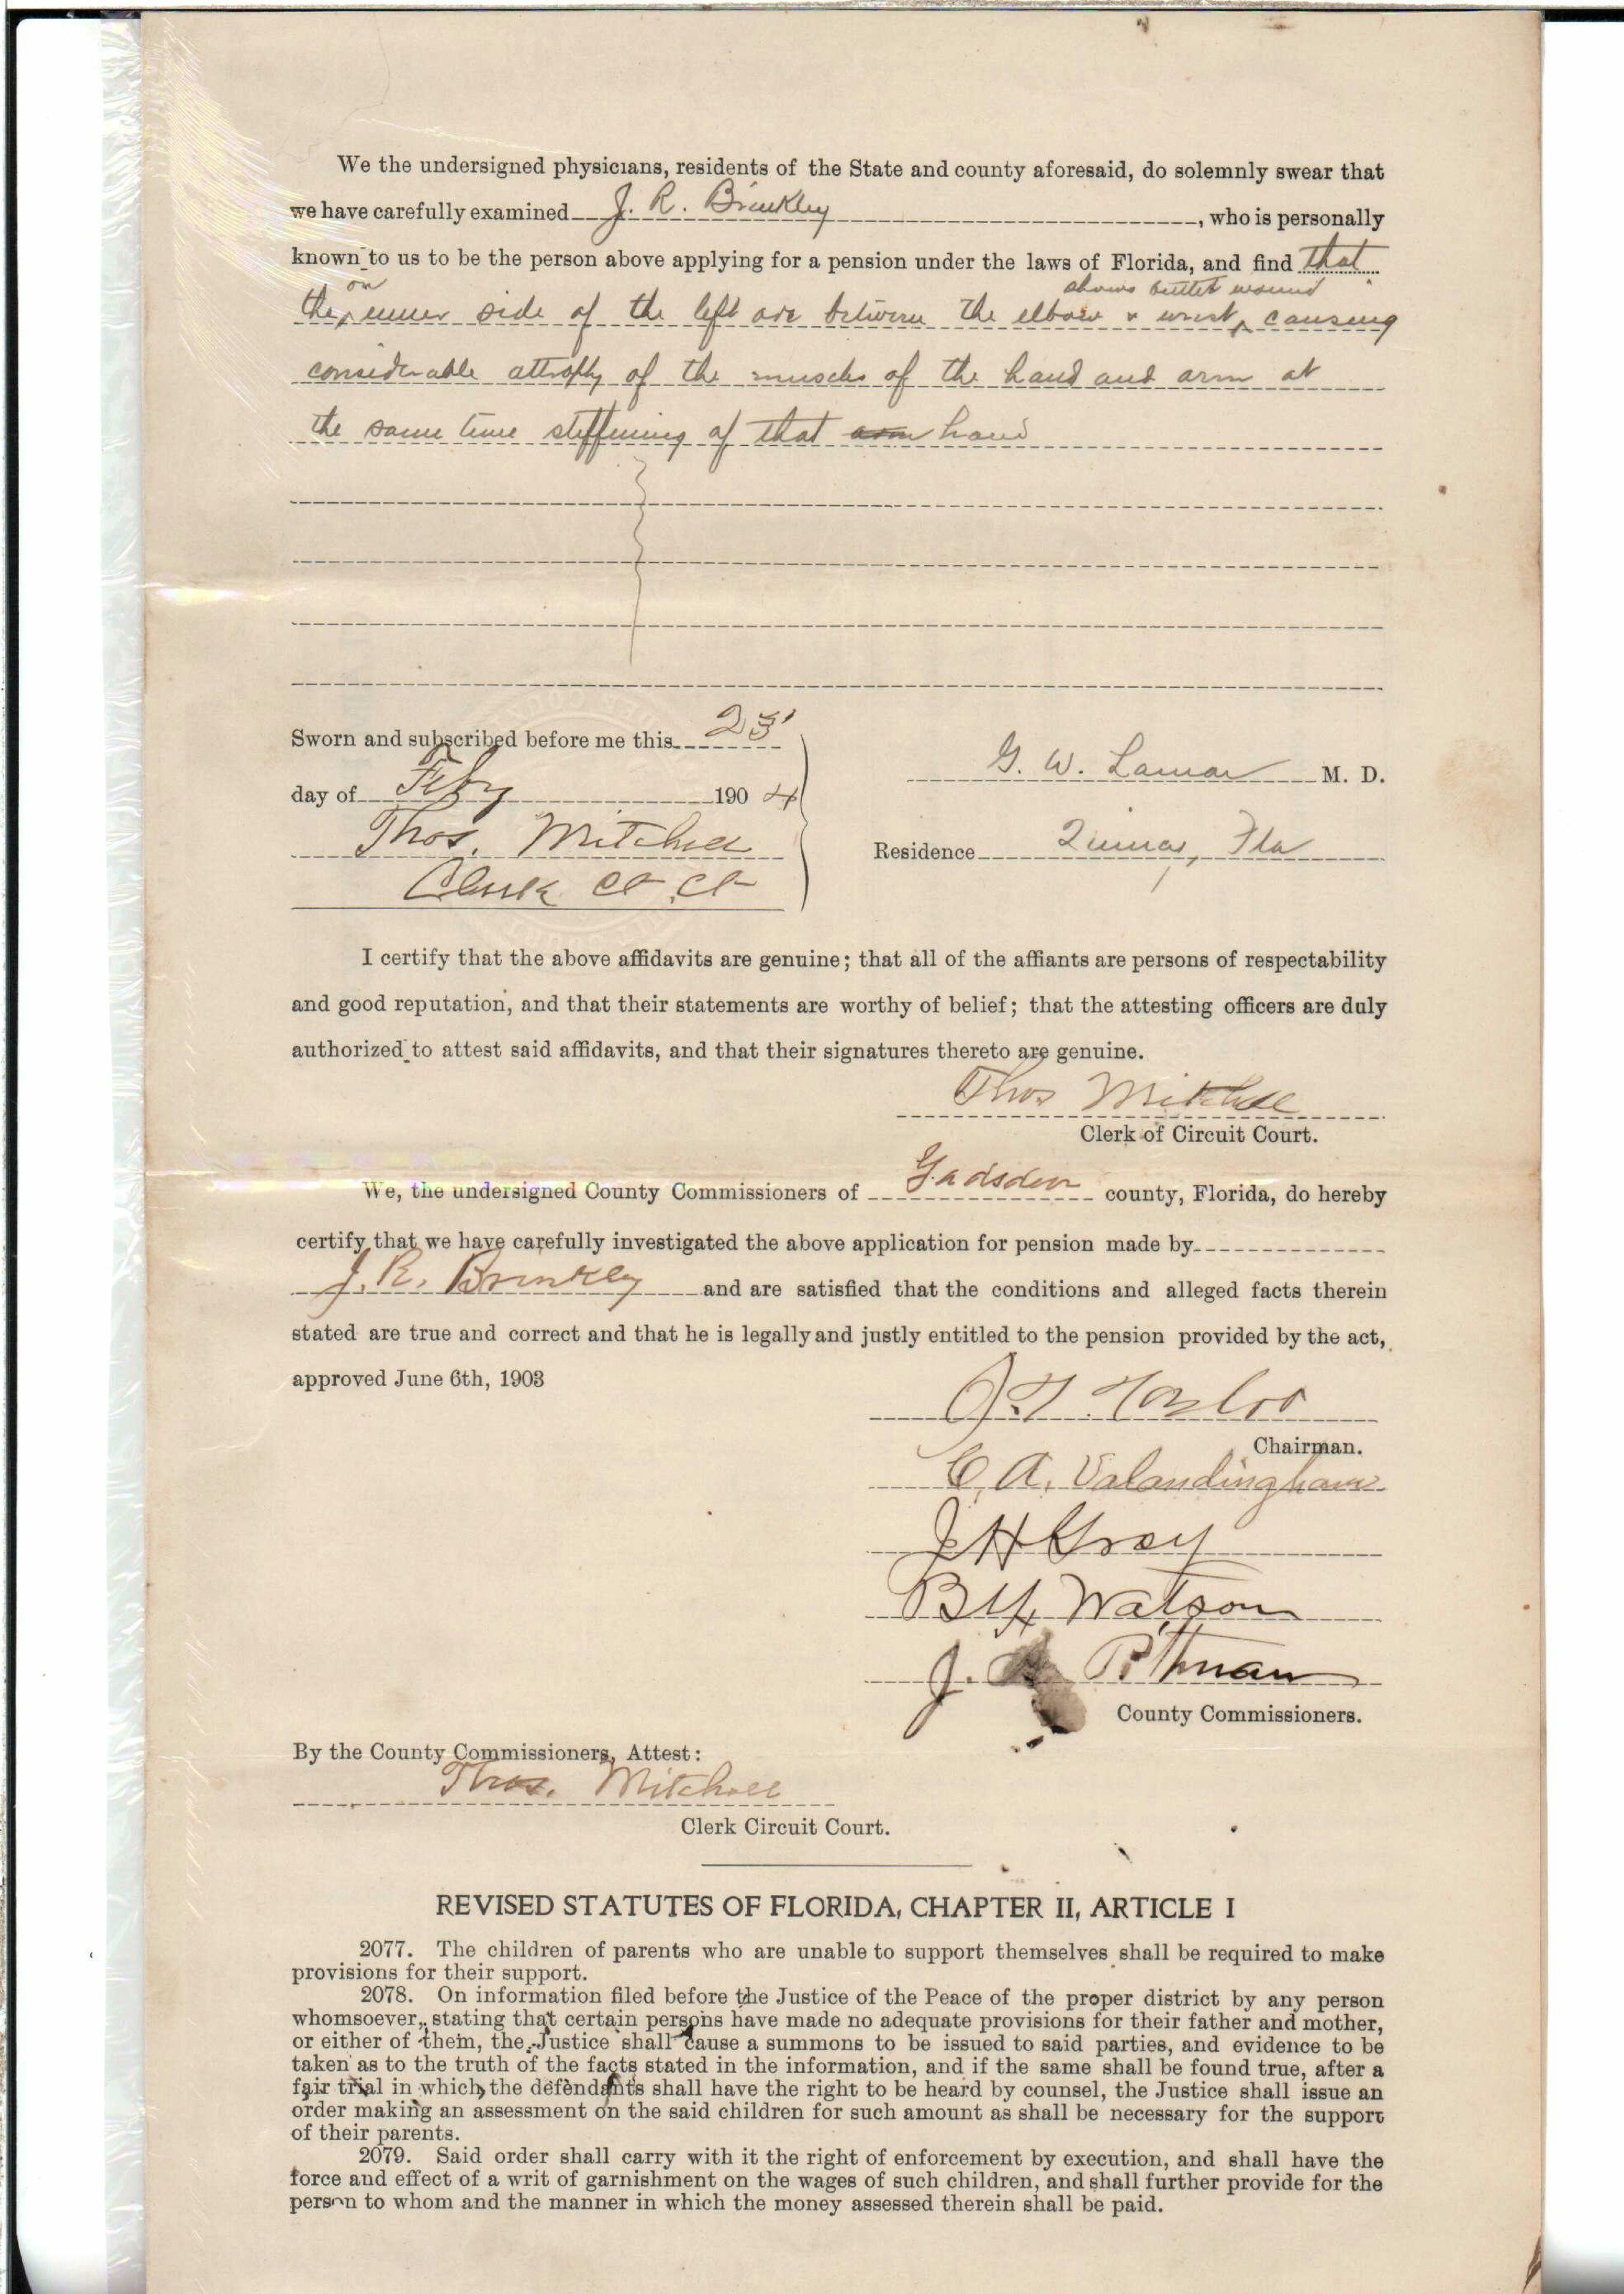 We the undersigned physicians, residents of the State and county aforesaid, do solemnly swear that
we have carefully examined J. R. Brinkley, who is personally
known to us to be the person above applying for a pension under the laws of Florida, and find that
on shows bullet wound
the inner side of the left between the elbow & wrist, causing
considerable attrophy of the muscles of the hand and arm at
the same time stiffening of that arm hand
Sworn and subscribed before me this 23
day of Feby 1904
Thos. Mitchell
Clerk Ct. Ct
G. W. Lamar M. D.
Residence Fla
I certify that the above affidavits are genuine; that all of the affiants are persons of respectability
and good reputation, and that their statements are worthy of belief; that the attesting officers are duly
authorized to attest said affidavits, and that their signatures thereto are genuine.
Thos Mitchell
Clerk of Circuit Court.
We, the undersigned County Commissioners of Gadsden county, Florida, do hereby
certify that we have carefully investigated the above application for pension made by
J. R. Brinkley and are satisfied that the conditions and alleged facts therein
stated are true and correct and that he is legally and justly entitled to the pension provided by the act,
approved June 6th, 1903
Chairman.
C. A. Valandingham
J H Gray
Watson
J. Pittman
County Commissioners.
By the County Commissioners, Attest:
Thos. Mitchell
Clerk Circuit Court.
REVISED STATUTES OF FLORIDA, CHAPTER II, ARTICLE I
2077. The children of parents who are unable to support themselves shall be required to make
provisions for their support.
2078. On information filed before the Justice of the Peace of the proper district by any person
whomsoever, stating that certain persons have made no adequate provisions for their father and mother,
or either of them, the Justice shall cause a summons to be issued to said parties, and evidence to be
taken as to the truth of the facts stated in the information, and if the same shall be found true, after a
fair trial in which the defendants shall have the right to be heard by counsel, the Justice shall issue an
order making an assessment on the said children for such amount as shall be necessary for the support
of their parents.
2079. Said order shall carry with it the right of enforcement by execution, and shall have the
force and effect of a writ of garnishment on the wages of such children, and shall further provide for the
person to whom and the manner in which the money assessed therein shall be paid.